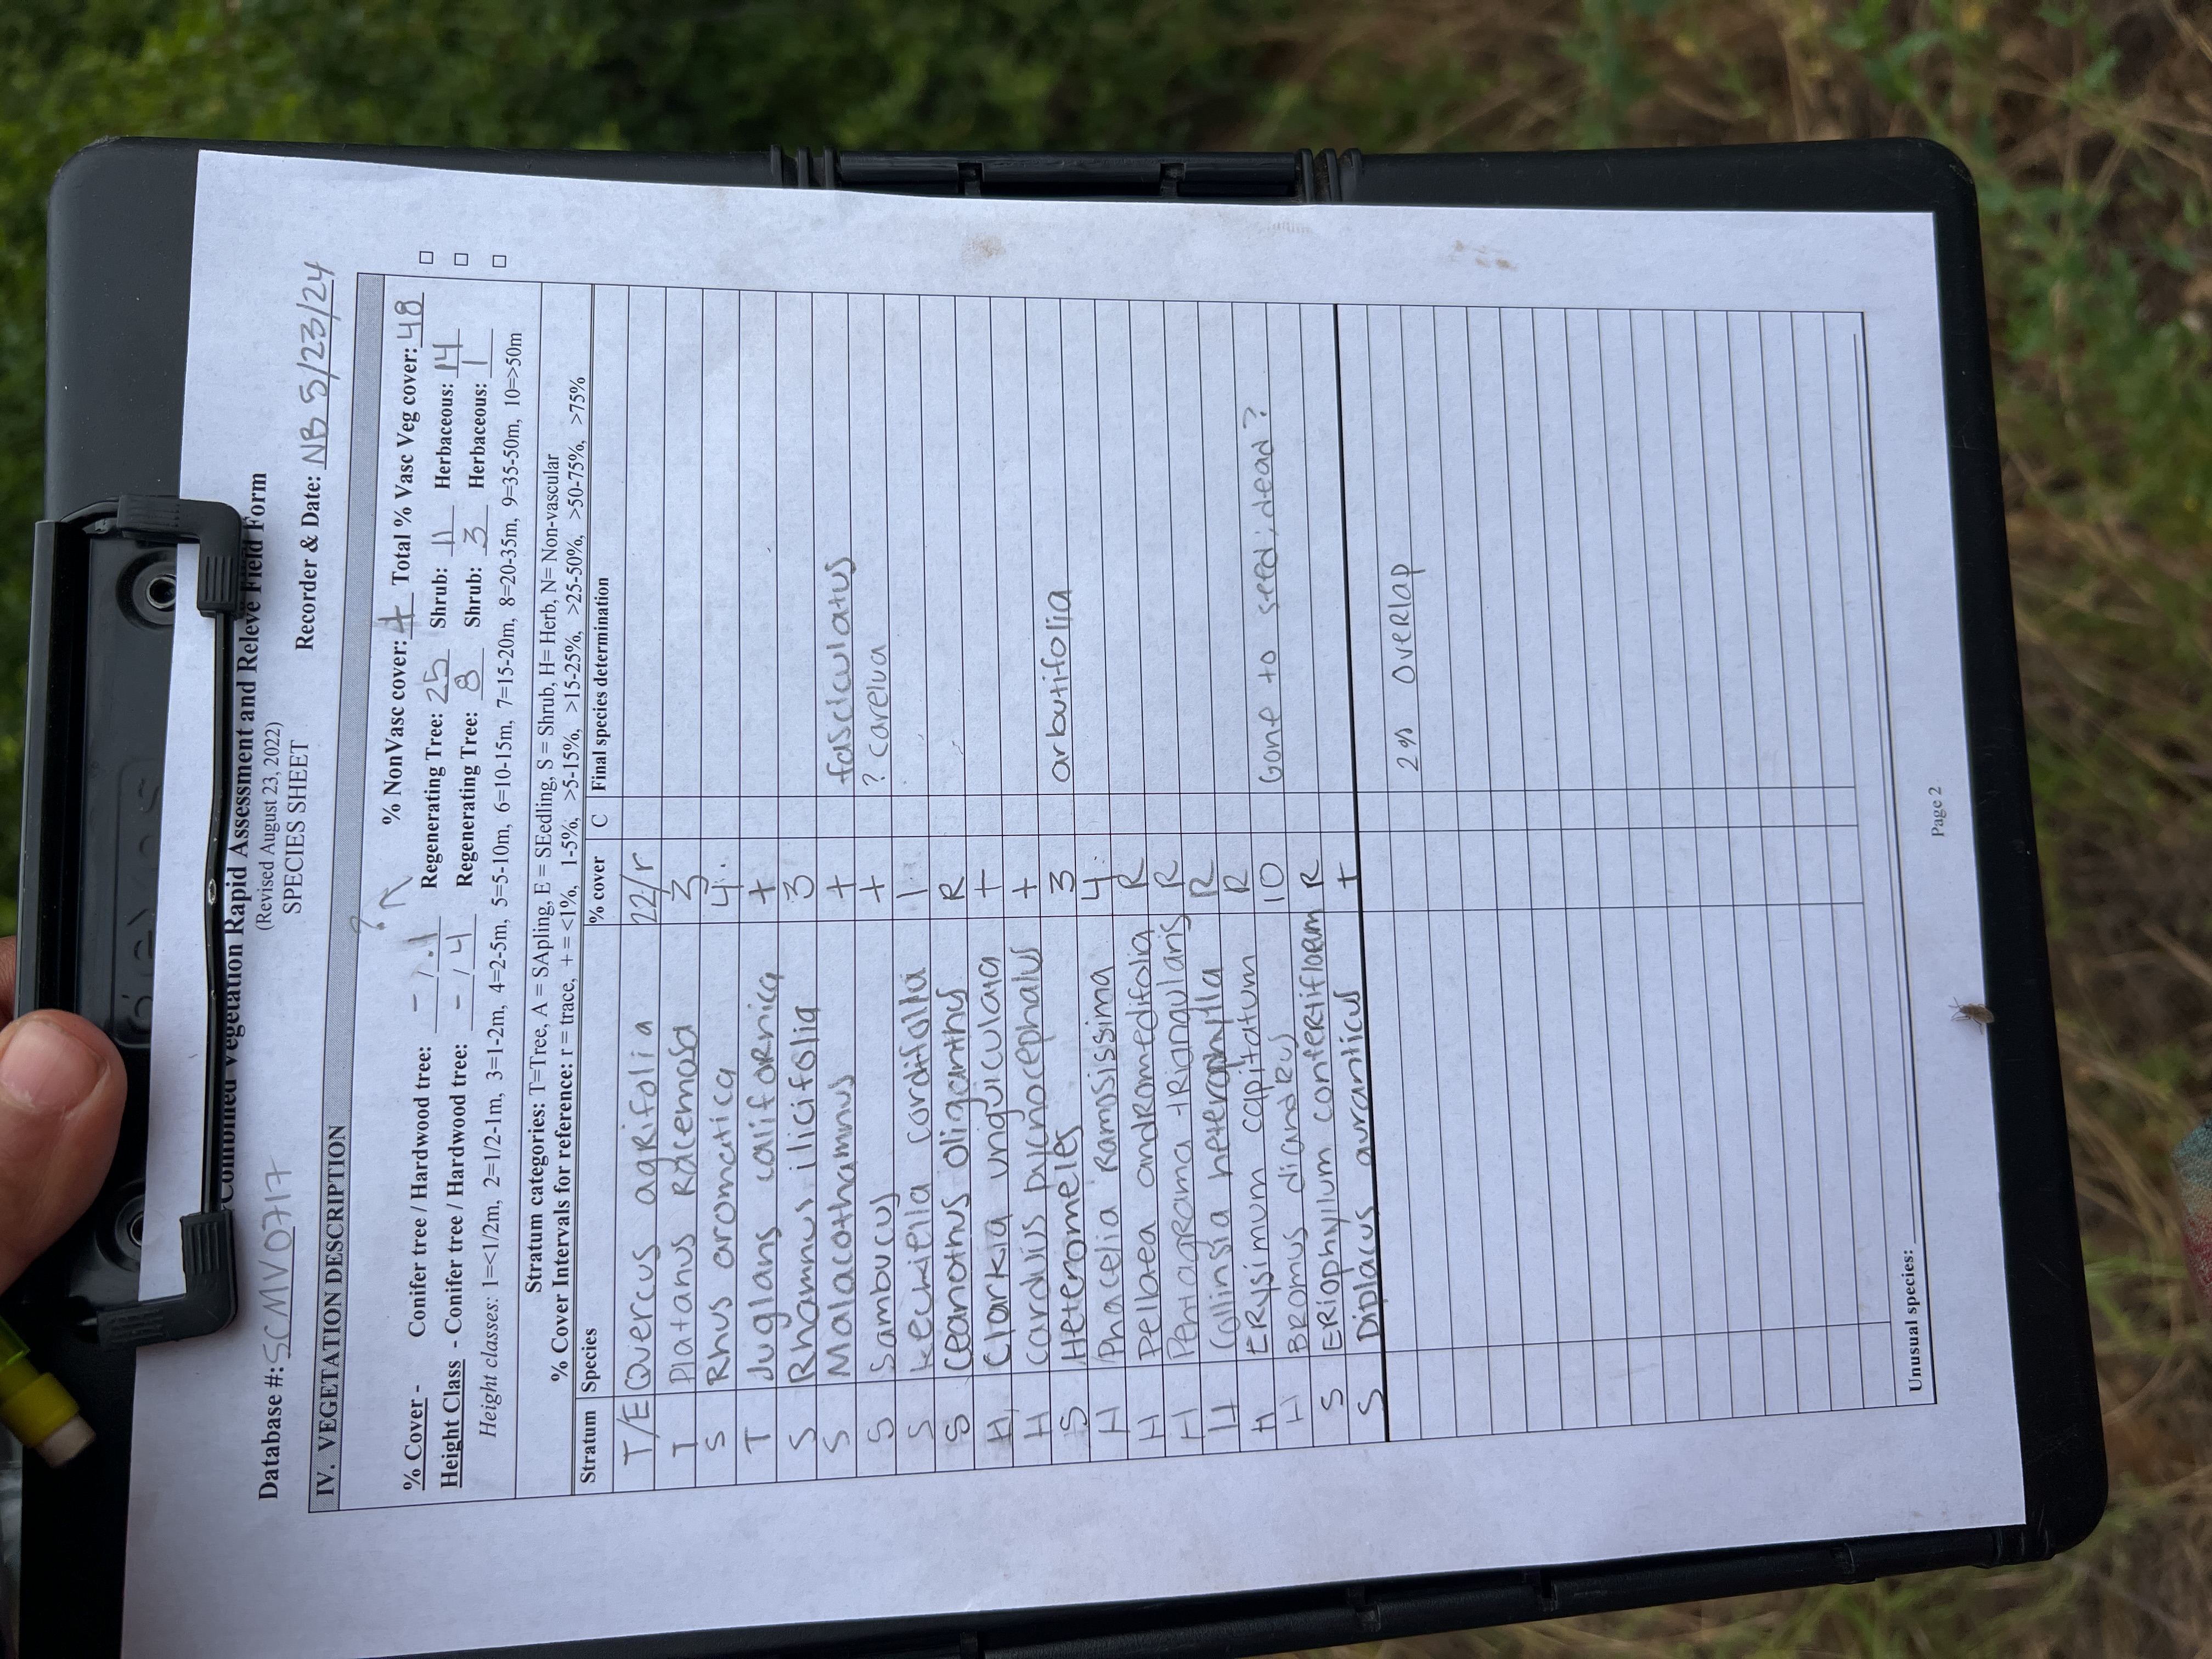 Combined Vegetation Rapid Assessment and Relevé Field Form
(Revised August 23, 2022)
SPECIES SHEET
Database #: SCMV0717 Recorder & Date: NB 5/23/24
IV. VEGETATION DESCRIPTION
?
% NonVasc cover: + Total % Vasc Veg cover: 48
% Cover - Conifer tree / Hardwood tree: - / .1 Regenerating Tree: 25 Shrub: 11 Herbaceous: 14 □
Height Class - Conifer tree / Hardwood tree: - / 4 Regenerating Tree: 8 Shrub: 3 Herbaceous: 1 □
Height classes: 1=<1/2m, 2=1/2-1m, 3=1-2m, 4=2-5m, 5=5-10m, 6=10-15m, 7=15-20m, 8=20-35m, 9=35-50m, 10=>50m □
Stratum categories: T=Tree, A = SApling, E = SEedling, S = Shrub, H= Herb, N= Non-vascular
% Cover Intervals for reference: r = trace, + = <1%, 1-5%, >5-15%, >15-25%, >25-50%, >50-75%, >75%
Stratum Species % cover C Final species determination
T/E Quercus agrifolia 22/r
T Platanus Racemosa 3
S Rhus aromatica 4
T Juglans californica +
S Rhamnus ilicifolia 3
S Malacothamnus + fasciculatus
S Sambucus + ?
S Keckiella cordifolia 1
S Ceanothus oliganthus R
H Clarkia unguiculata +
H Carduus pycnocephalus +
S Heteromeles 3 arbutifolia
H Phacelia Ramosissima 4
H Pellaea andromedifolia R
H Pentagrama triangularis R
H Collinsia heterophylla R
H Erysimum capitatum R
H Bromus diandrus 10 Gone to seed; dead?
S Eriophyllum confertiflorum R
S Diplacus auranticus +
2% Overlap
Unusual species:
Page 2